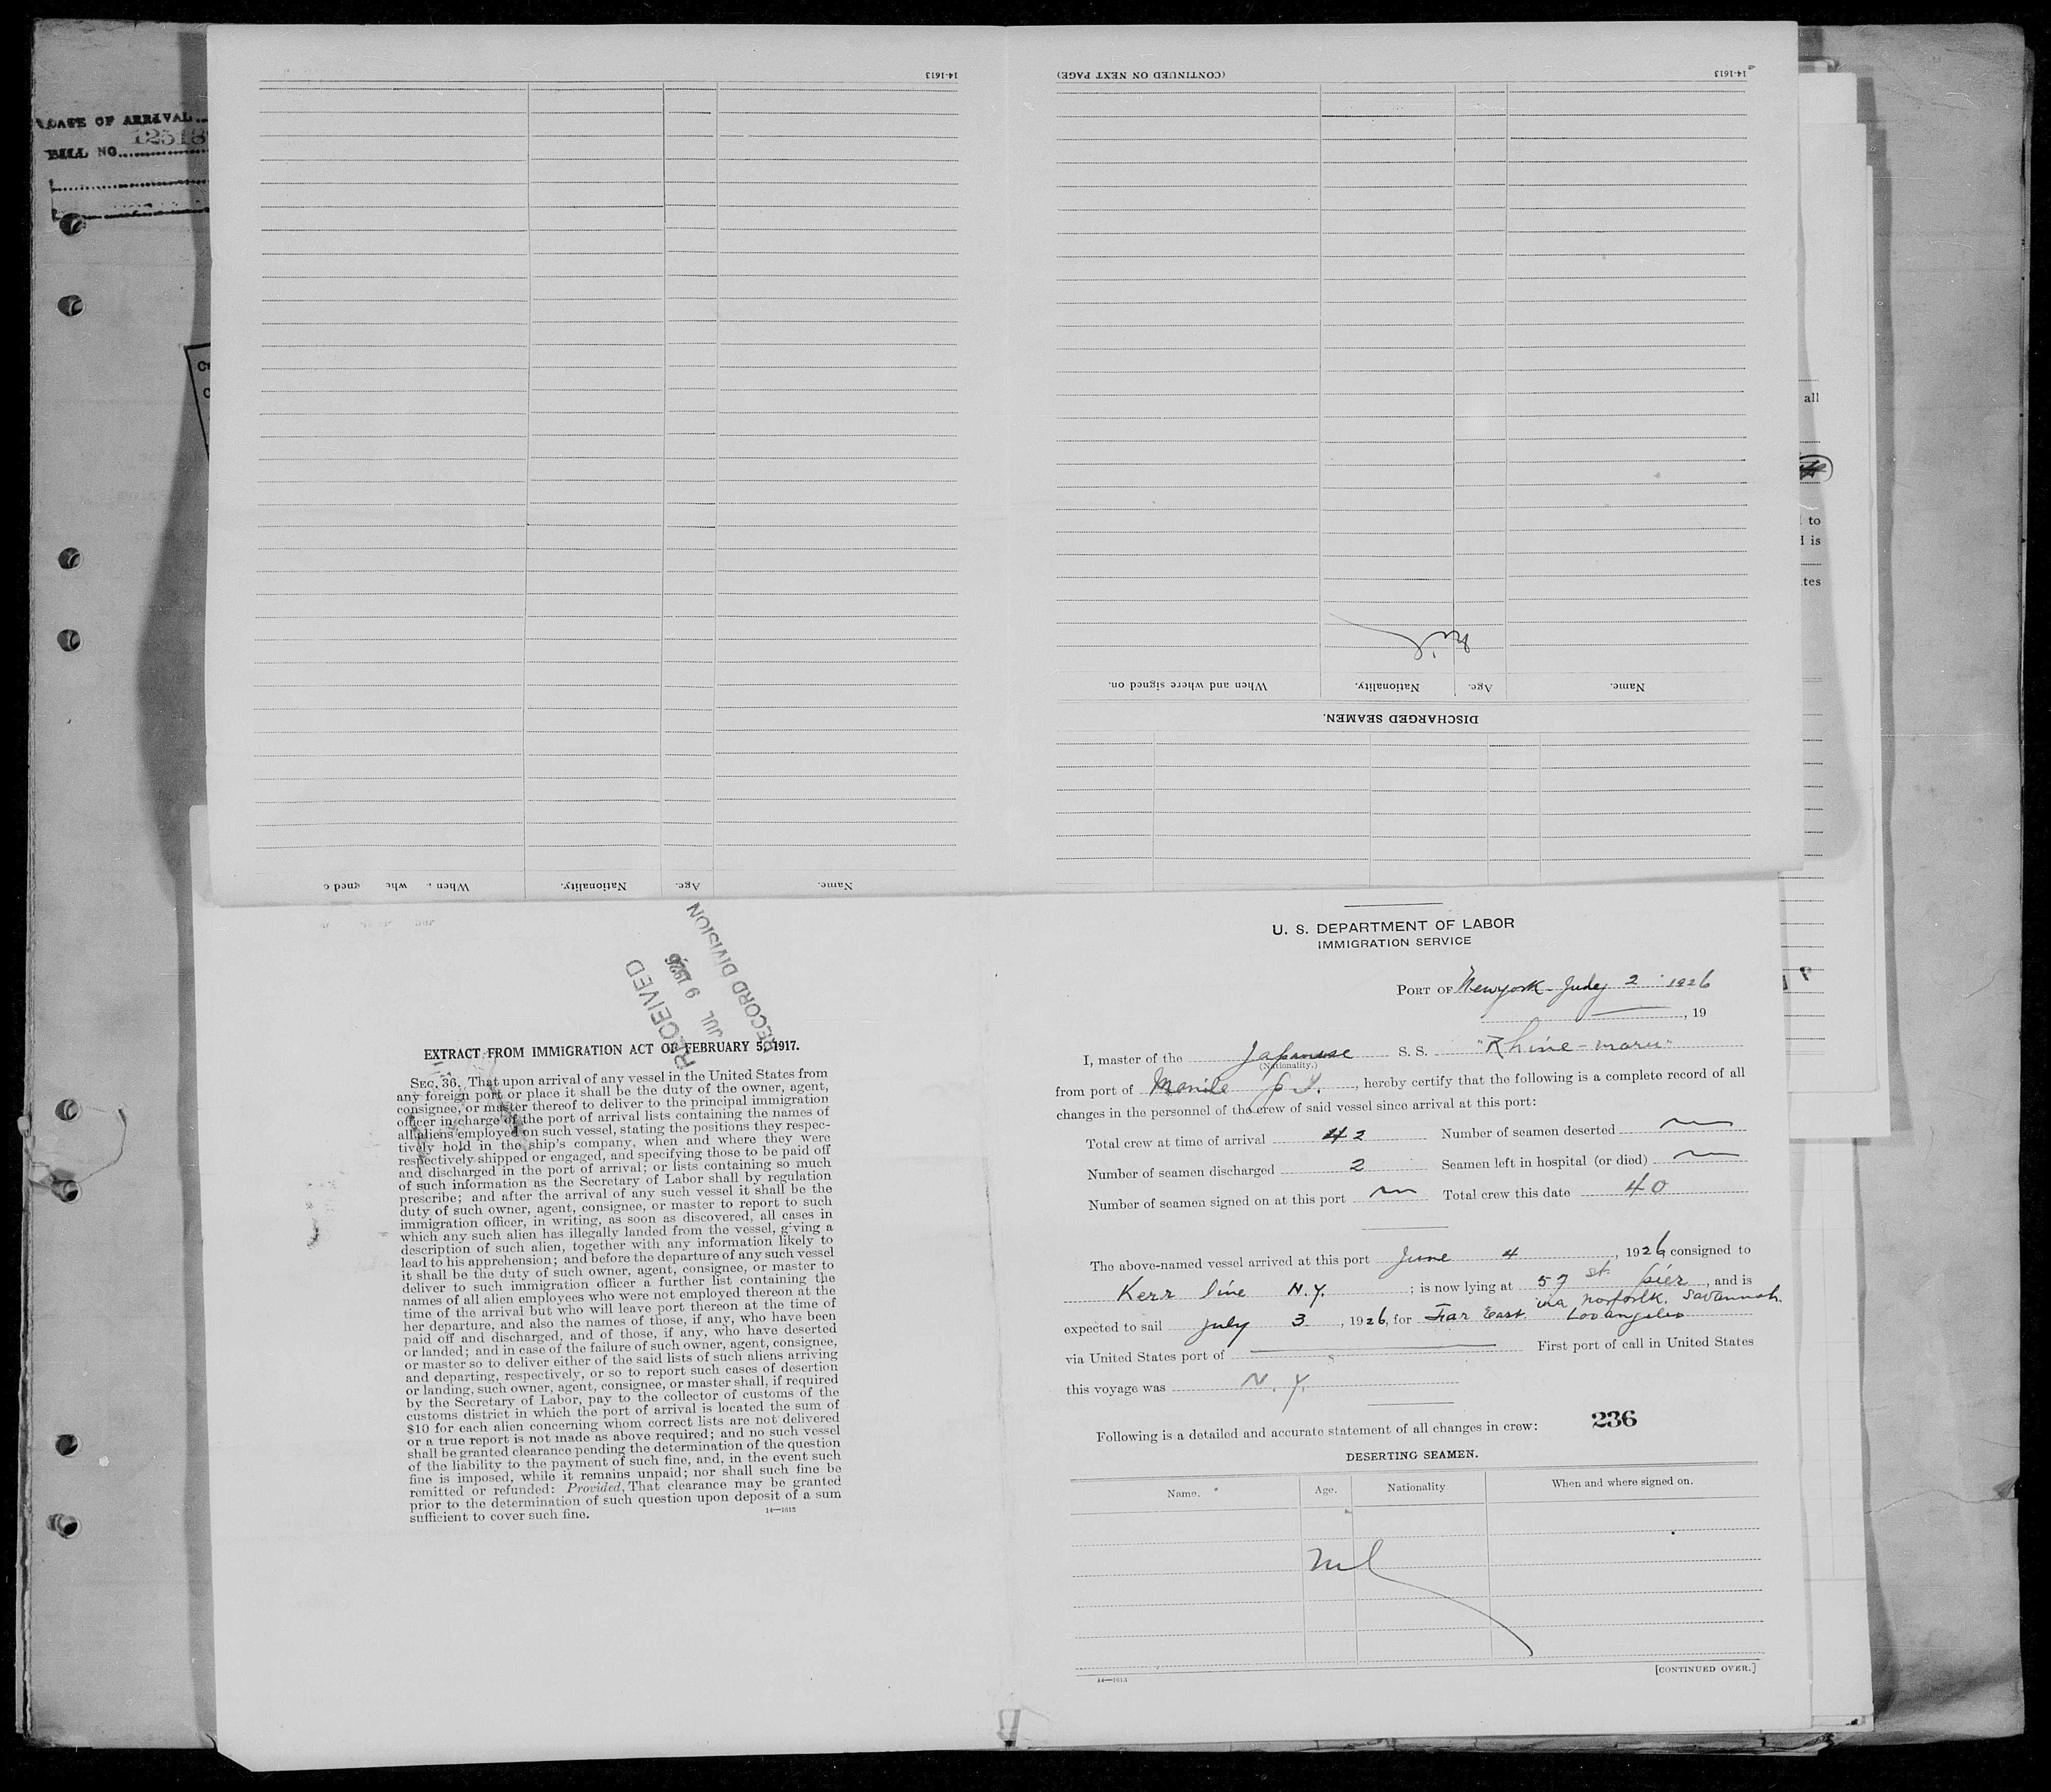 DATE OF ARRIVAL
BILL NO. 12518
14-1613
(CONTINUED ON NEXT PAGE)
14-1613
all
to
is
tes
nil
When and where signed on.
Nationality.
Age.
Name.
DISCHARGED SEAMEN.
Name.
Age.
Nationality.
When
RECEIVED
JUL 9 1926
RECORD DIVISION
EXTRACT FROM IMMIGRATION ACT OF FEBRUARY 5, 1917.
SEC. 36. That upon arrival of any vessel in the United States from
any foreign port or place it shall be the duty of the owner, agent,
consignee, or master thereof to deliver to the principal immigration
officer in charge of the port of arrival lists containing the names of
all aliens employed on such vessel, stating the positions they respec-
tively hold in the ship's company, when and where they were
respectively shipped or engaged, and specifying those to be paid off
and discharged in the port of arrival; or lists containing so much
of such information as the Secretary of Labor shall by regulation
prescribe; and after the arrival of any such vessel it shall be the
duty of such owner, agent, consignee, or master to report to such
immigration officer, in writing, as soon as discovered, all cases in
which any such alien has illegally landed from the vessel, giving a
description of such alien, together with any information likely to
lead to his apprehension; and before the departure of any such vessel
it shall be the duty of such owner, agent, consignee, or master to
deliver to such immigration officer a further list containing the
names of all alien employees who were not employed thereon at the
time of the arrival but who will leave port thereon at the time of
her departure, and also the names of those, if any, who have been
paid off and discharged, and of those, if any, who have deserted
or landed; and in case of the failure of such owner, agent, consignee,
or master so to deliver either of the said lists of such aliens arriving
and departing, respectively, or so to report such cases of desertion
or landing, such owner, agent, consignee, or master shall, if required
by the Secretary of Labor, pay to the collector of customs of the
customs district in which the port of arrival is located the sum of
$10 for each alien concerning whom correct lists are not delivered
or a true report is not made as above required; and no such vessel
shall be granted clearance pending the determination of the question
of the liability to the payment of such fine, and, in the event such
fine is imposed, while it remains unpaid; nor shall such fine be
remitted or refunded: Provided, That clearance may be granted
prior to the determination of such question upon deposit of a sum
sufficient to cover such fine.
14—1613
U. S. DEPARTMENT OF LABOR
IMMIGRATION SERVICE
PORT OF Newyork July 2 1926
, 19
I, master of the Japanese S. S. "Rhine-maru"
(Nationality.)
from port of Manila P. I., hereby certify that the following is a complete record of all
changes in the personnel of the crew of said vessel since arrival at this port:
Total crew at time of arrival 42 Number of seamen deserted
Number of seamen discharged 2 Seamen left in hospital (or died)
Number of seamen signed on at this port Total crew this date 40
The above-named vessel arrived at this port June 4, 1926 consigned to
Kerr line N.Y. ; is now lying at 57 st. pier, and is
expected to sail July 3, 1926, for Far East. via Norfolk, Savannah. Losangeles
via United States port of First port of call in United States
this voyage was N. Y.
Following is a detailed and accurate statement of all changes in crew: 236
DESERTING SEAMEN.
Name. Age. Nationality When and where signed on.
nil
14—1613
[CONTINUED OVER.]